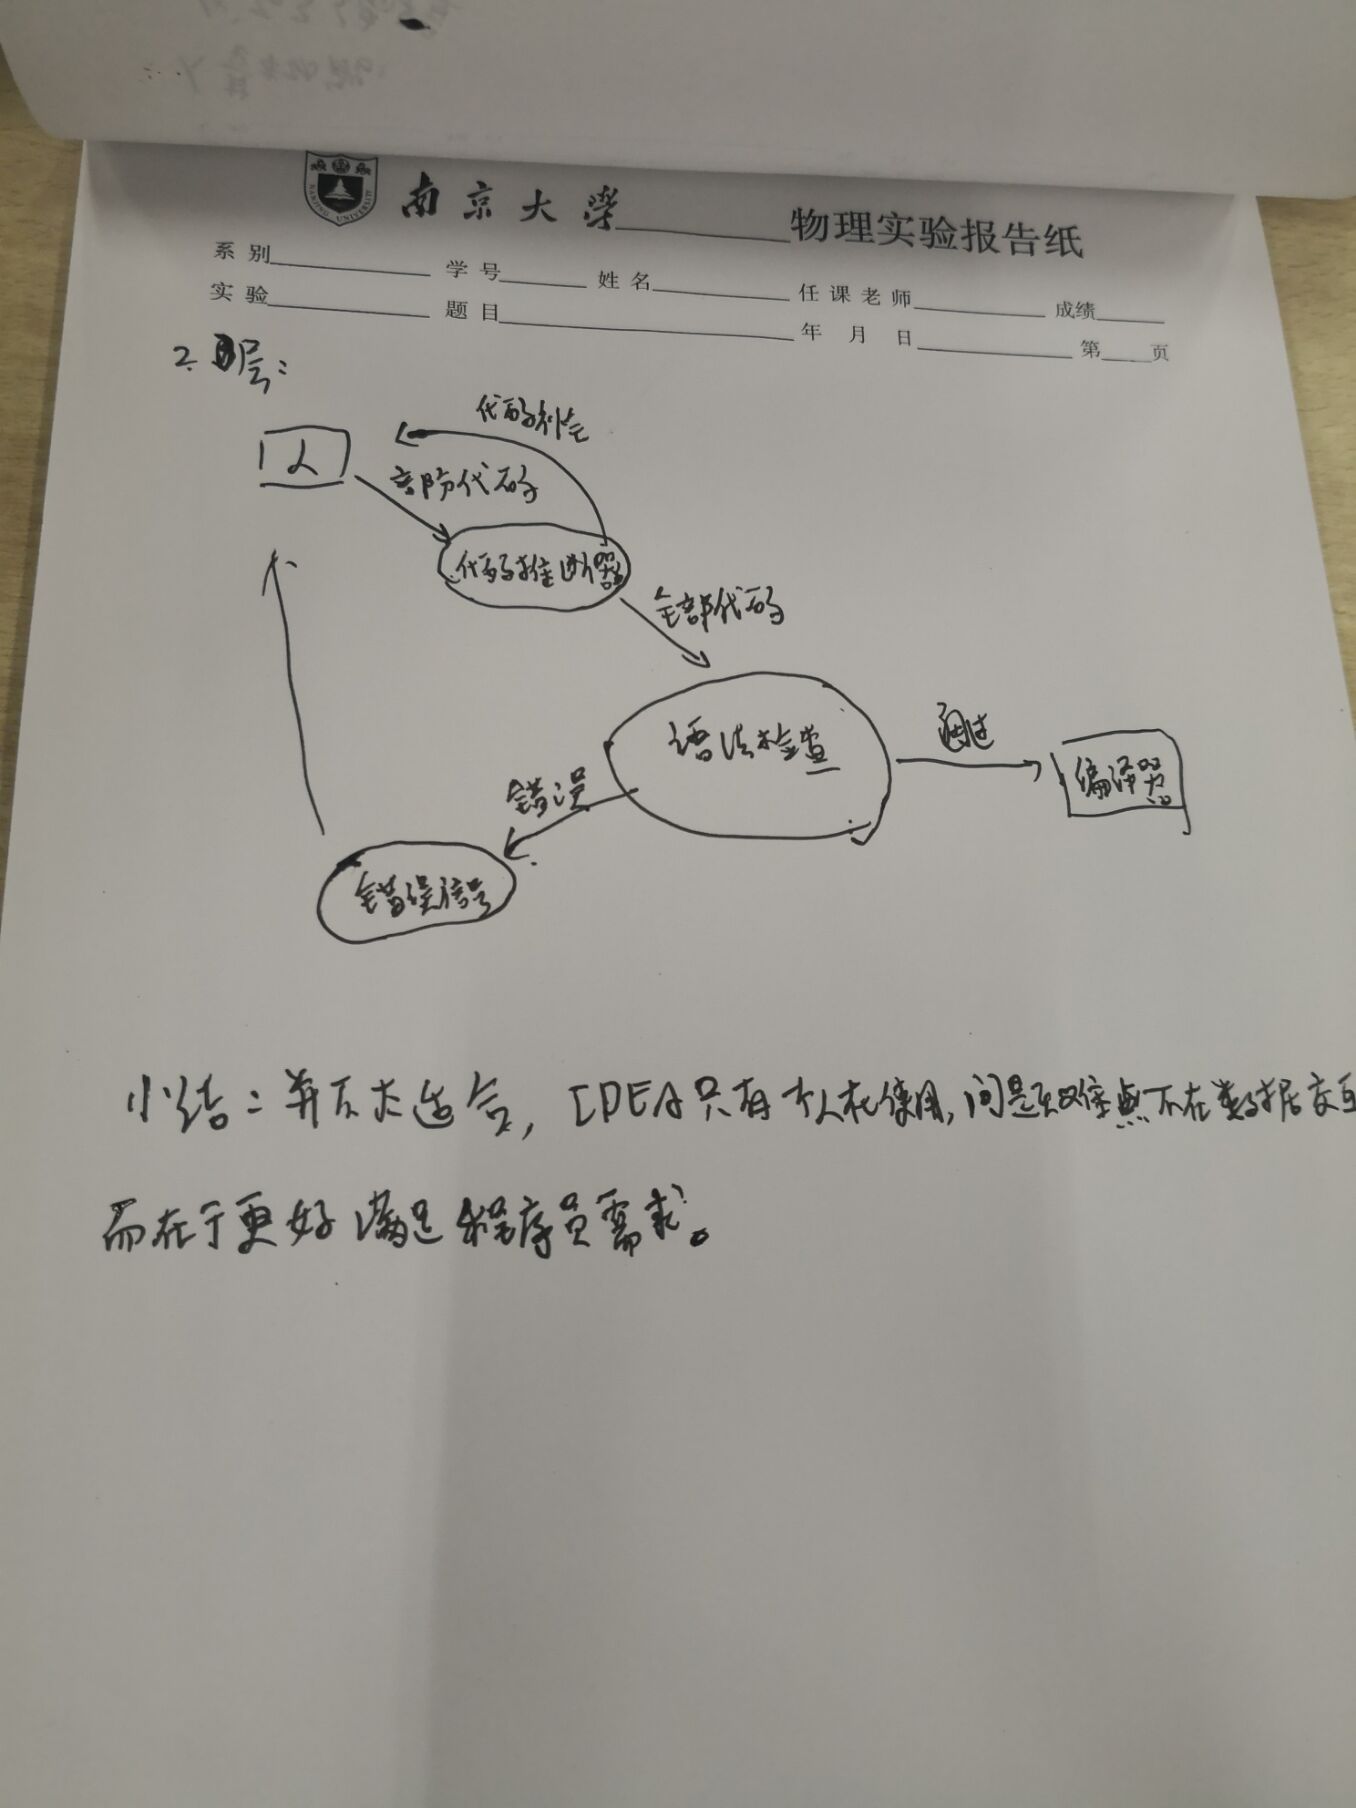 南京大学 物理实验报告纸
系别 学号 姓名 任课老师 成绩
实验 题目 年 月 日 第 页
2. 层:
代码补全
人
部份代码
代码推断器
全部代码
语法检查
通过
编译器
错误
错误信号
小结:并不太适合,IDEA只有个人在使用,问题 不在数据交互
而在于更好满足程序员需求。